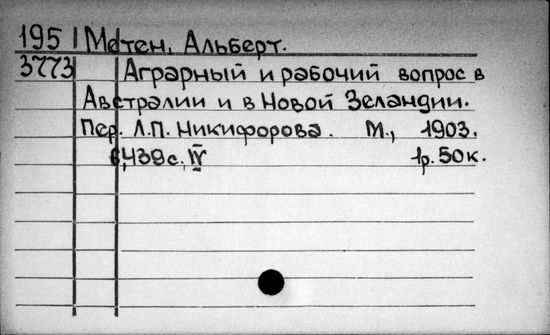 195 Метен, Альберт.
3773 Аграрный и рабочий вопрос в
Австралии и в Новой Зеландии.
Пер. Л.П. Никифорова. М., 1903.
439 с., IV 1р. 50к.